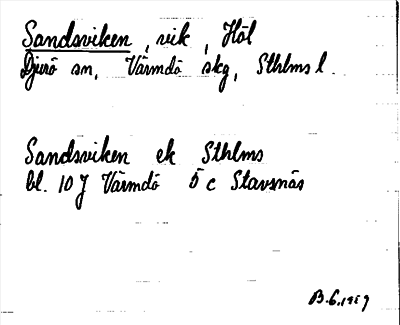 Sandsviken, vik, Höl
Djurö sn, Värmdö skg, Sthlms l.
Sandsviken ek Sthlms
bl. 10J Värmdö Ö c Stavsnäs
B.6.1969